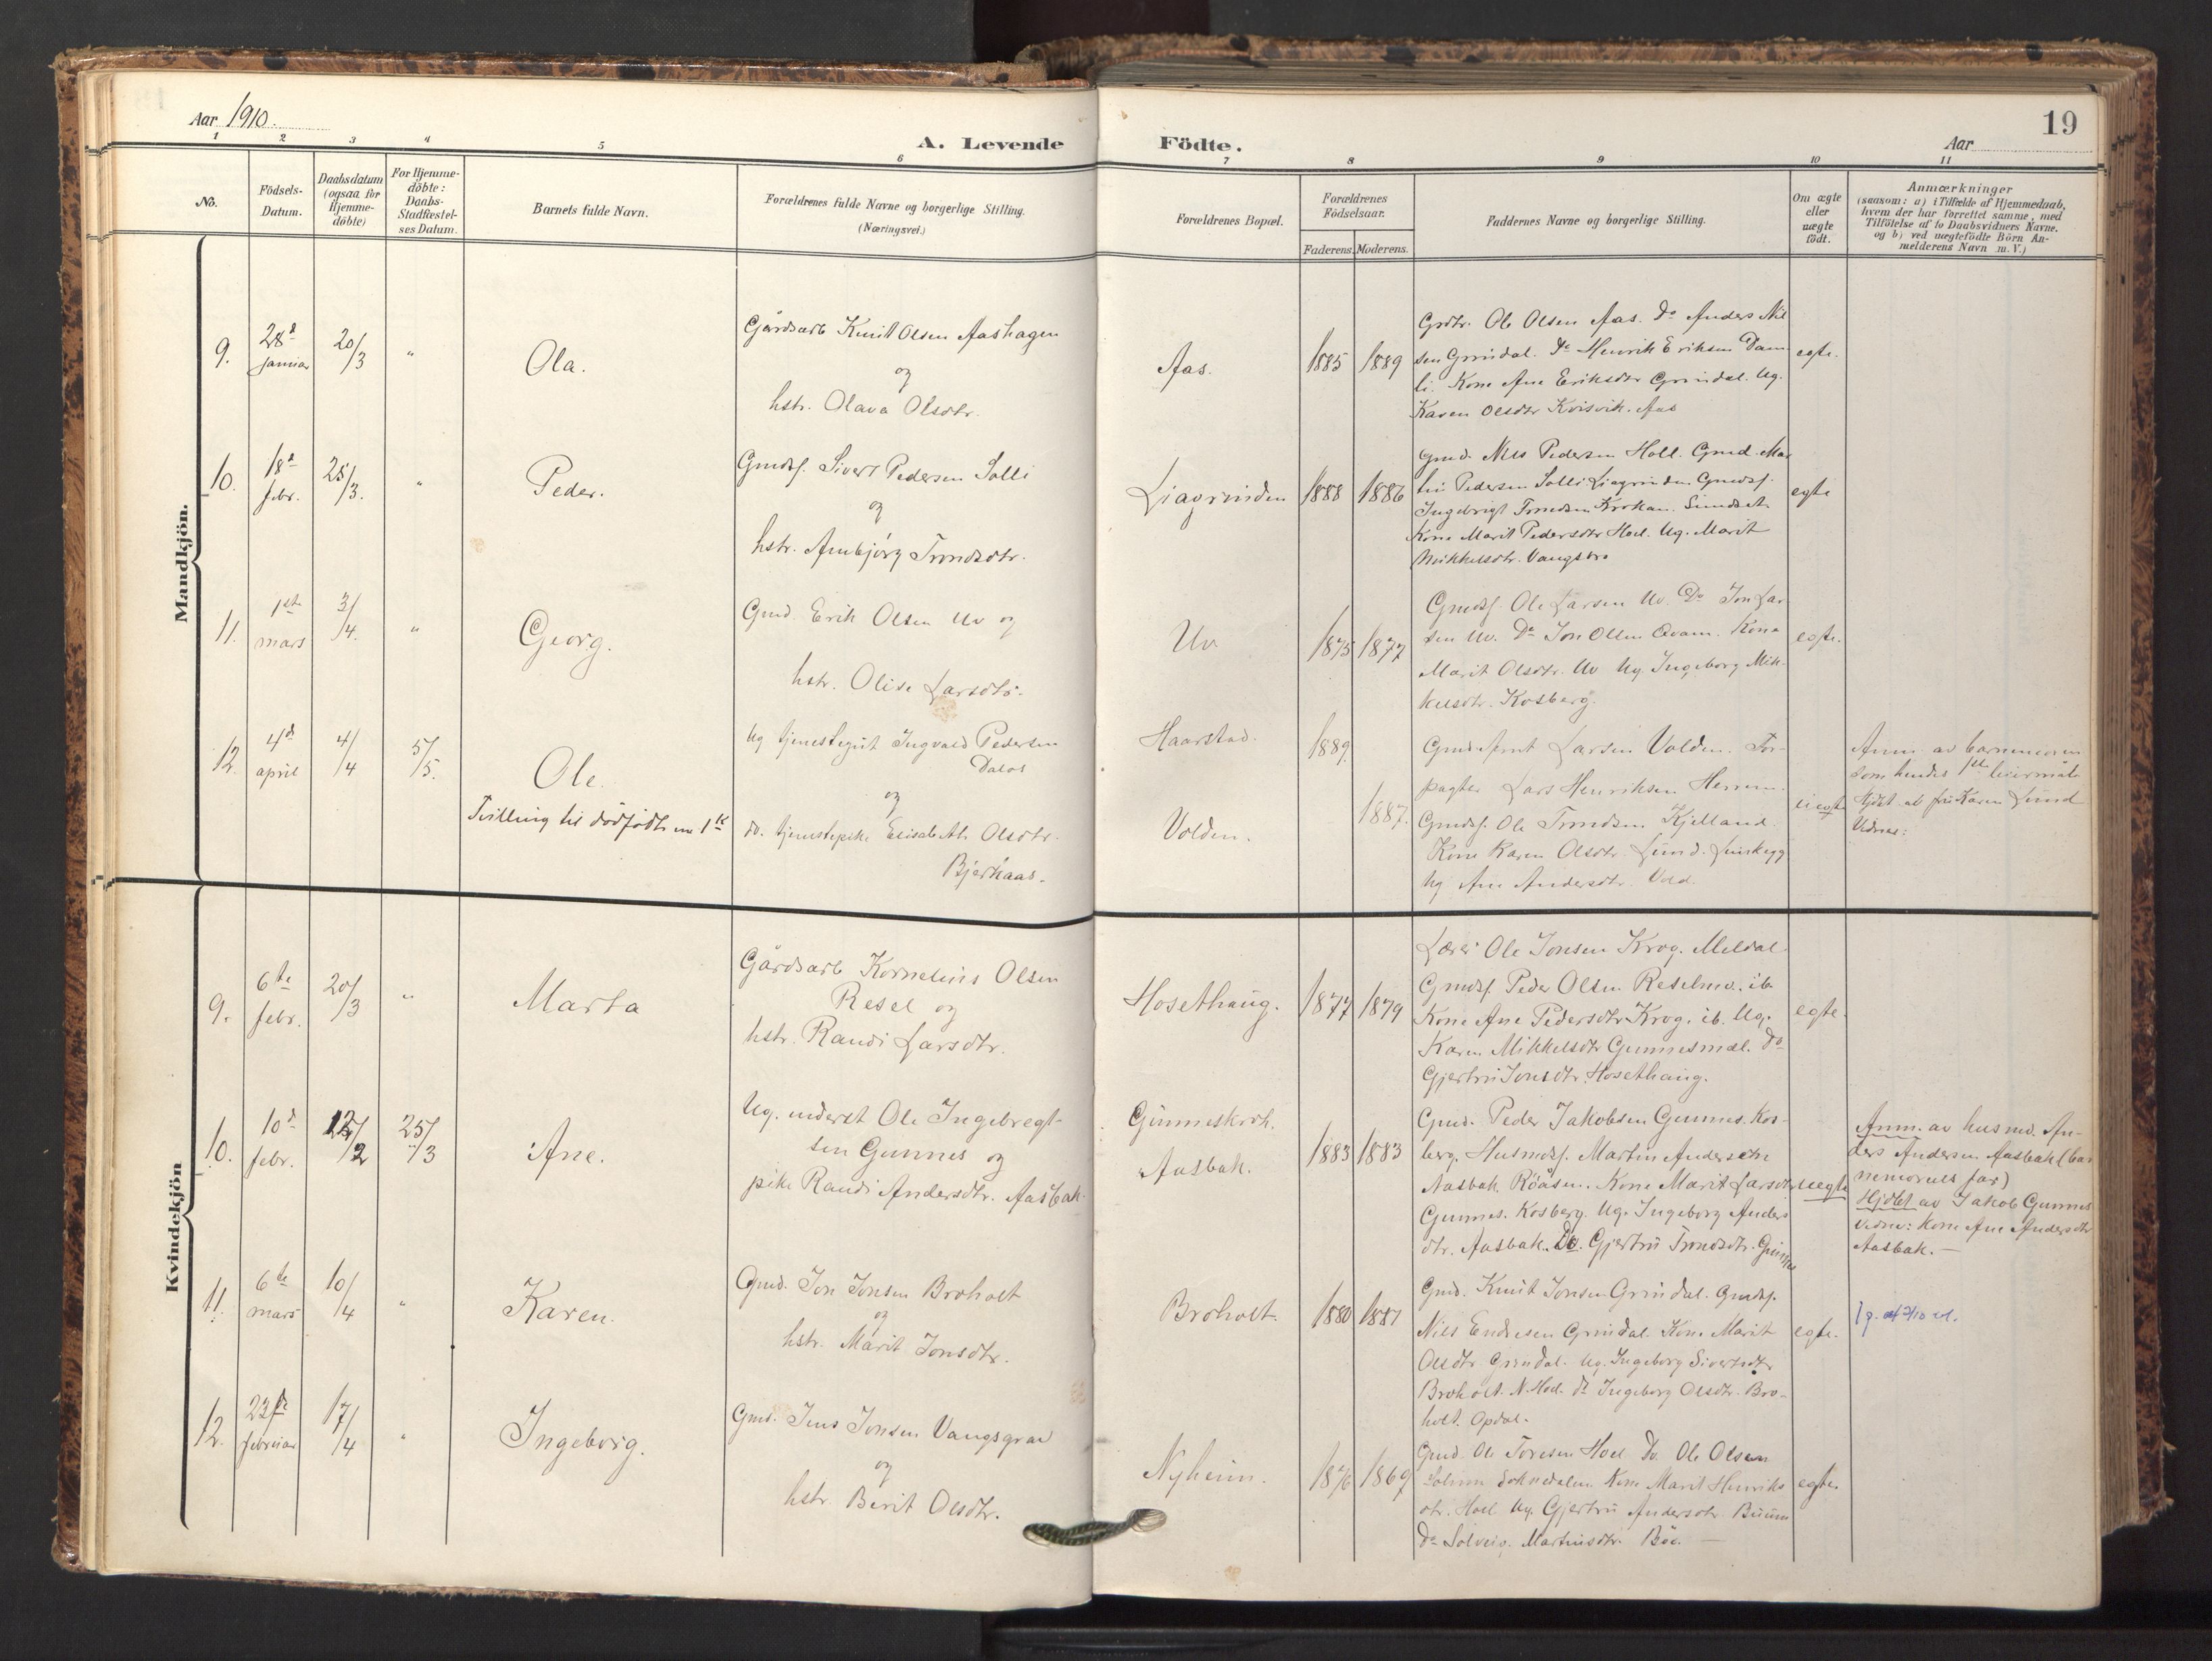 Aar 1910.
A. Levende Födte.
Aar
19
1 2 3 4 5 6 7 8 9 10 11
No.
Födsels-
Datum.
Daabsdatum
(ogsaa for
Hjemme-
döbte)
For Hjemme-
döbte:
Daabs-
Stadfæstel-
ses Datum.
Barnets fulde Navn.
Forældrenes fulde Navne og borgerlige Stilling.
(Næringsvei.)
Forældrenes Bopæl.
Forældrenes
Födselsaar.
Faderens. Moderens.
Faddernes Navne og borgerlige Stilling.
Om ægte
eller
uægte
født.
Anmærkninger
(saasom: a) i Tilfælde af Hjemmedaab,
hvem der har forrettet samme, med
Tilföielse af to Daabsvidners Navne.
og b) ved uægtefödte Börn An-
melderens Navn m. V.)
Mandkjön.
9.
28d
januar
20/3
"
Ola.
Gårdsarb Knut Olsen Aashagen
og
hstr. Olava Olsdtr.
Aas.
1885
1889
Grdbr. Ole Olsen Aas. Do Anders Nil
sen Grindal. Do Henrik Eriksen Dam
li. Kone Ane Eriksdtr Grindal. Ug.
Karen Olsdtr Kvisvik. Aas
egte.
10.
18d
febr.
25/3.
"
Peder.
Gmdsf. Sivert Pedersen Solli
og
hstr. Ambjørg Trondsdtr.
Liagrinden
1888
1886
Gmd. Nils Pedersen Holl. Gmd. Mar
tin Pedersen Solli Liagrinden Gmdsf.
Ingebrigt Trondsen Krokan. Sundset.
Kone Marit Pedersdtr Hoel. Ug. Marit
Mikkelsdtr. Vangsbro
egte
11.
1ste
mars
3/4.
"
Georg.
Gmd Erik Olsen Uv og
hstr. Olise Larsdtr.
Uv
1875
1877
Gmdsf. Ole Larsen Uv. Do Jon Lar-
sen Uv. Do Jon Olsen Qvam. Kone
Marit Olsdtr. Uv Ug. Ingeborg Mik-
kelsdtr. Kosberg.
egte.
12.
4d
april
4/4
5/5.
Ole.
Tvilling til dødfødte no 1 k
Ug tjenestegut Ingvald Pedersen
Dalos
og
do. tjenestepike Elisabeth Olsdtr.
Bjerkaas.
Haarstad.
Volden.
1889.
1887.
Gmd Arnt Larsen Volden. For-
pagter Lars Henriksen Herrem.
Gmdsf. Ole Trondsen Kjelland.
Kone Karen Olsdtr. Lund.
Ug Ane Andersdtr. Vold.
uegte
Anm. av barnemoren
som hendes 1ste leiermål
Hjdøt. av fru Karen Lund
Vidner:
Kvindekjön
9.
6te
febr.
20/3
"
Marta
Gårdsarb Kornelius Olsen
Resel og
hstr. Randi Larsdtr.
Hosethaug.
1877
1879
Lærer Ole Jonsen Krog. Meldal
Gmdsf. Peder Olsen Reselmo. ib
Kone Ane Pedersdtr Krog. ib. Ug.
Karen Mikkelsdtr Gunnesmæl. Do
Gjertru Jonsdtr. Hosethaug.
egte.
10.
10d
febr.
12/2
25/3
Ane.
Ug. inderst Ole Ingebregt-
sen Gunnes og
pike Randi Andersdtr. Aasbak.
Gunneskroh.
Aasbak.
1883
1883
Gmd. Peder Jakobsen Gunnes. Kos-
berg. Husmdsf. Martin Andersen
Aasbak. Röåsen. Kone Marit Larsdtr
Gunnes. Kosberg. Ug. Ingeborg Anders
dtr. Aasbak. Do. Gjertru Trondsdtr. Gunnes
uegte
Anm. av husmd. An-
ders Andersen Aasbak (bar
nemorens far)
Hjdöbt av Jakob Gunnes
Vidne: Kone Ane Andersdtr
Aasbak. —
11.
6te
mars
10/4
"
Karen.
Gmd. Jon Jonsen Broholt
og
hstr. Marit Jonsdtr.
Broholt.
1880
1887
Gmd. Knut Jonsen Grindal. Gmdsf.
Nils Endresen Grindal. Kone Marit
Olsdtr. Grindal. Ug. Ingeborg Sivertsdtr
Broholt. N. Hoel. Do Ingeborg Olsdtr. Bro-
holt. Opdal.
egte.
12.
23de
februar
17/4
"
Ingeborg.
Gmd. Jens Jonsen Vangsgrav
og
hstr Berit Olsdtr.
Nyheim.
1876
1869
Gmd. Ole Toresen Hoel Do. Ole Olsen
Solum Soknedalen. Kone Marit Henriks
dtr. Hoel Ug. Gjertru Andersdtr. Buum
Do Solveig. Martinsdtr. Böe. —
egte.